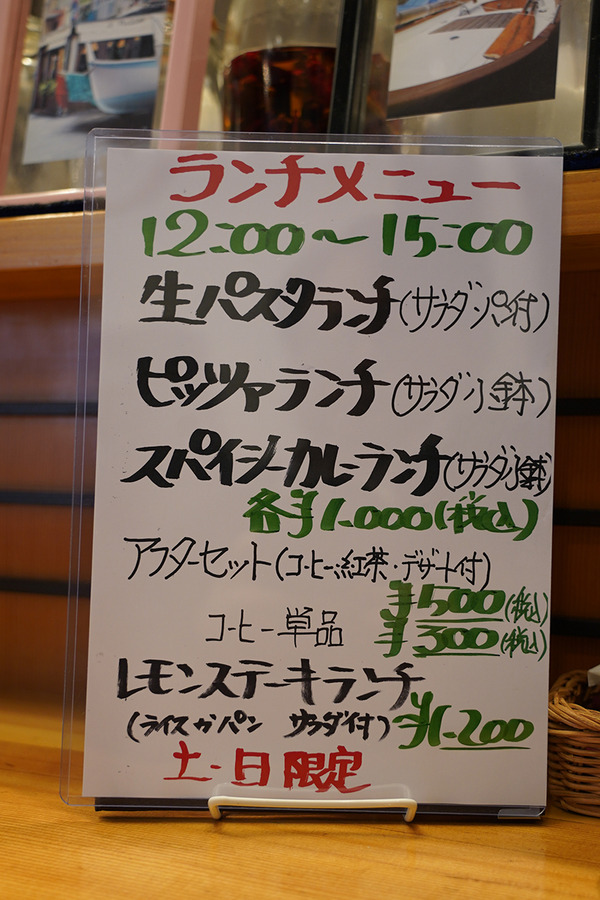 ランチメニュー
12:00〜15:00
生パスタランチ(サラダ・パン付)
ピッツァランチ(サラダ・小鉢)
スパイシーカレーランチ(サラダ・小鉢)
各¥1,000(税込)
アフターセット(コーヒー、紅茶・デザート付)
¥500(税込)
コーヒー単品 ¥300(税込)
レモンステーキランチ
(ライスかパン サラダ付) ¥1,200
土・日限定